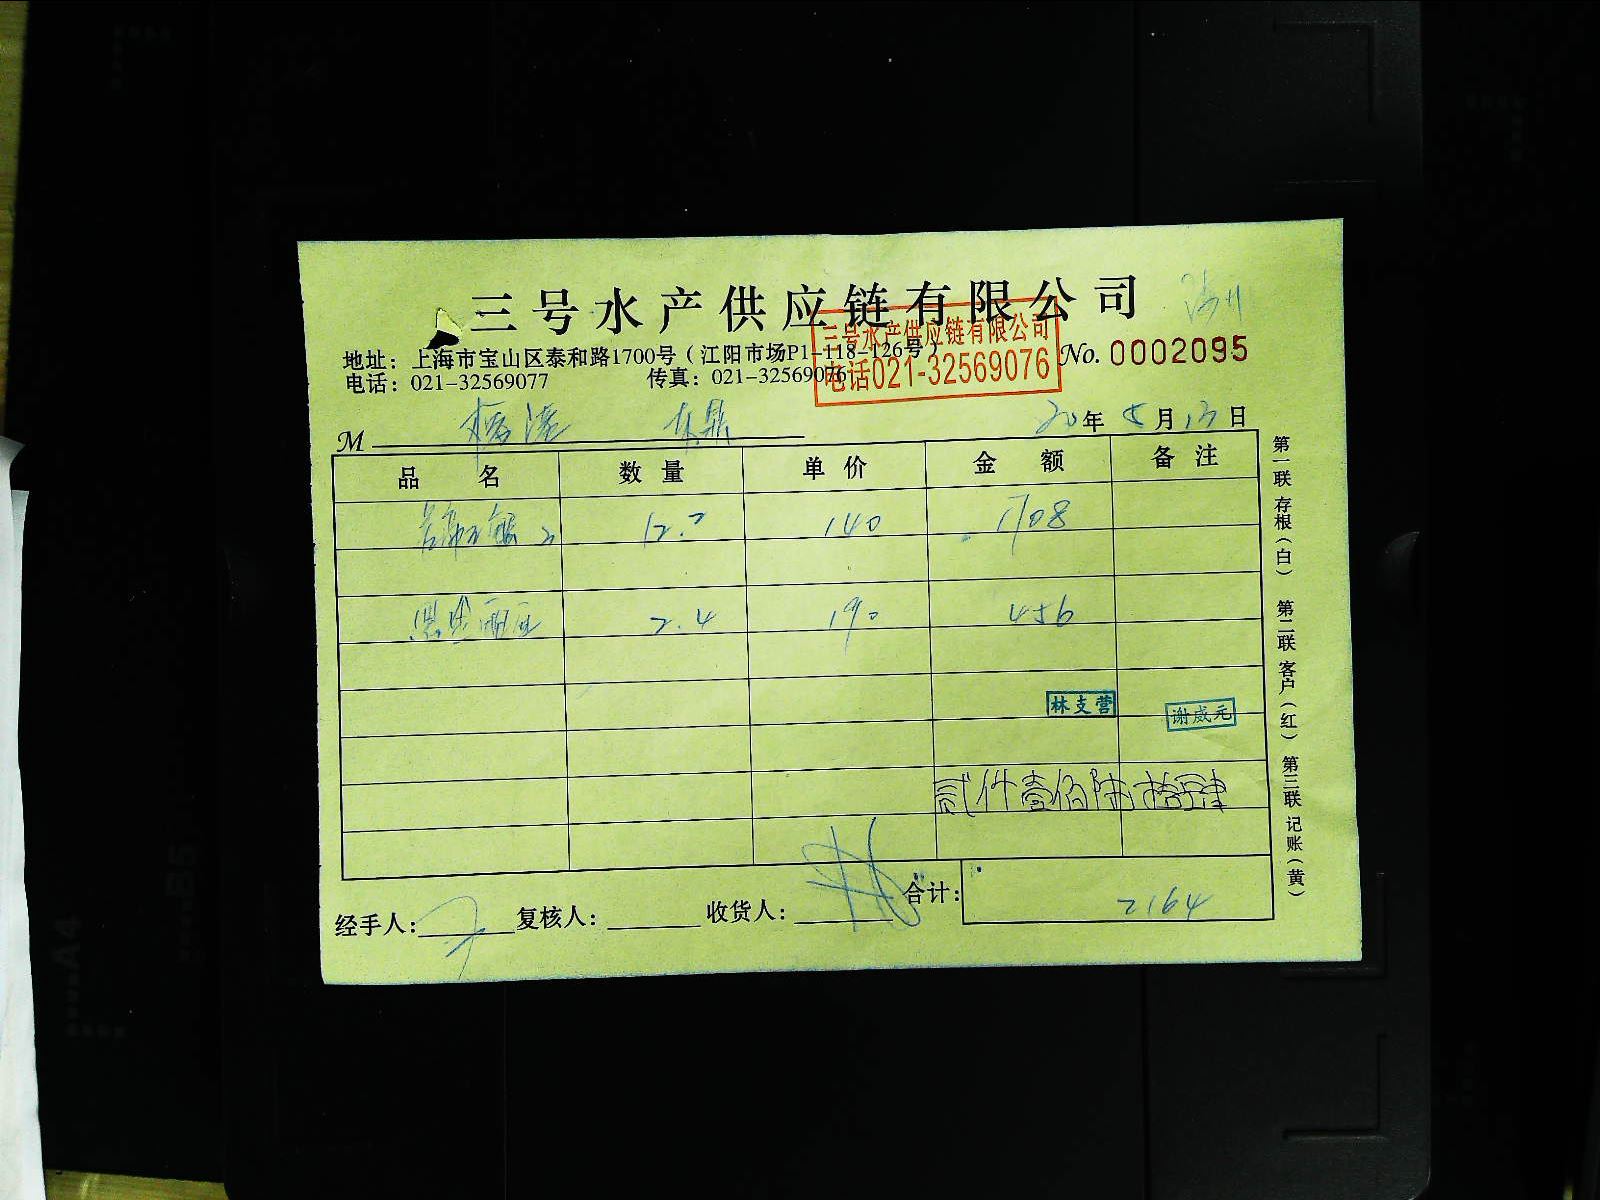 三号水产供应链有限公司
三号水产供应链有限公司
电话021-32569076
地址：上海市宝山区泰和路1700号（江阳市场P1-118-126号）
No. 0002095
电话：021-32569077 传真：021-32569076
M
20年8月13日
品名 数量 单价 金额 备注
12.2 140 1708
2.4 190 456
林支营
谢威元
贰仟壹佰陆拾肆
合计： 2164
经手人： 复核人： 收货人：
第一联 存根（白） 第二联 客户（红） 第三联 记账（黄）